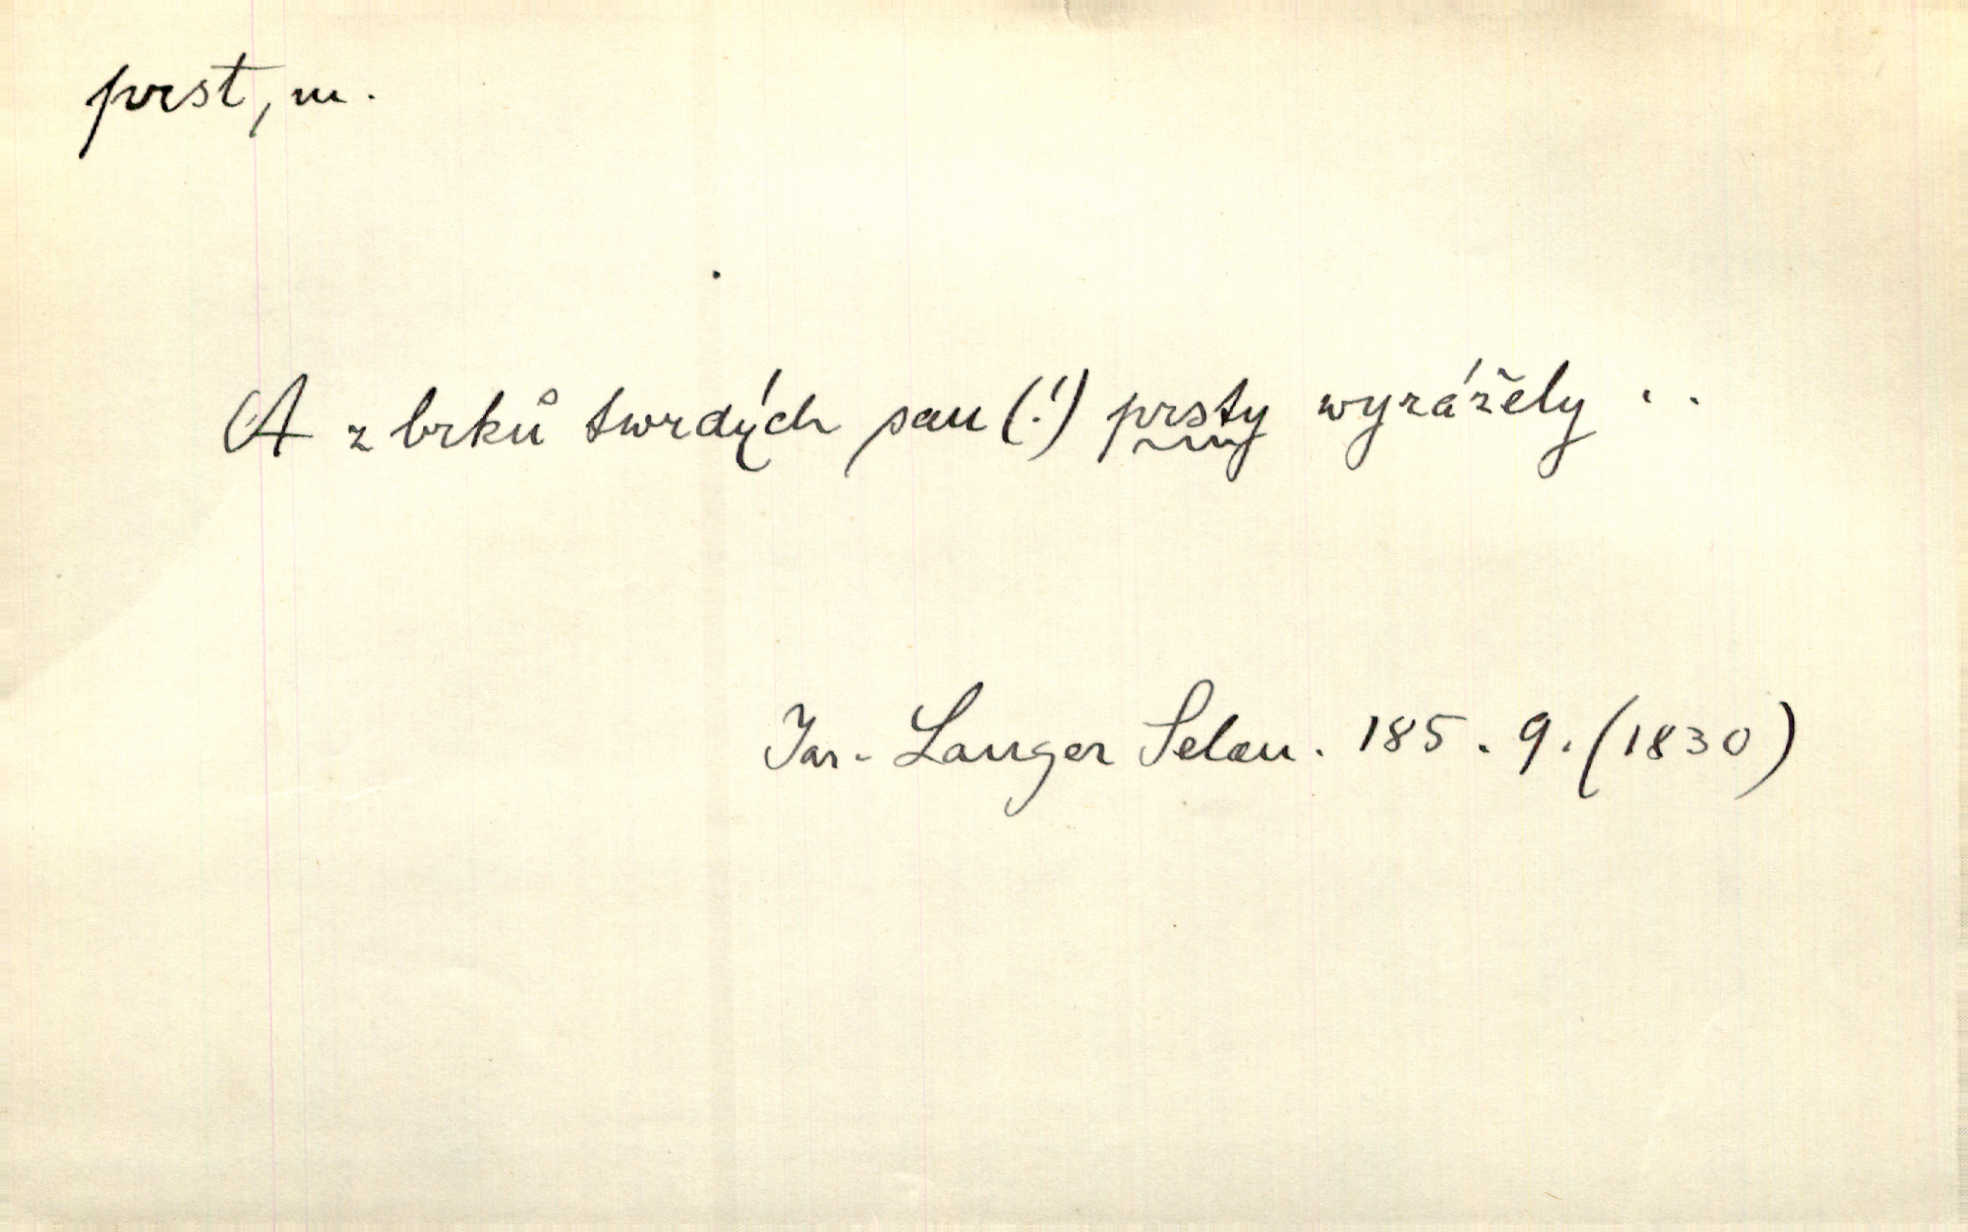 prst, m.
A z brků twrdých pau (!) prsty wyrážely ..
Jar. Langer Selan. 185. 9. (1830)